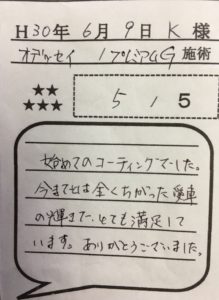 H30年 6月 9日 K 様
オデッセイ / プレミアムG 施術
★★
★★★
5 / 5
始めてのコーティングでした。
今までとは全くちがった愛車
の輝きで、とても満足して
います。ありがとうございました。